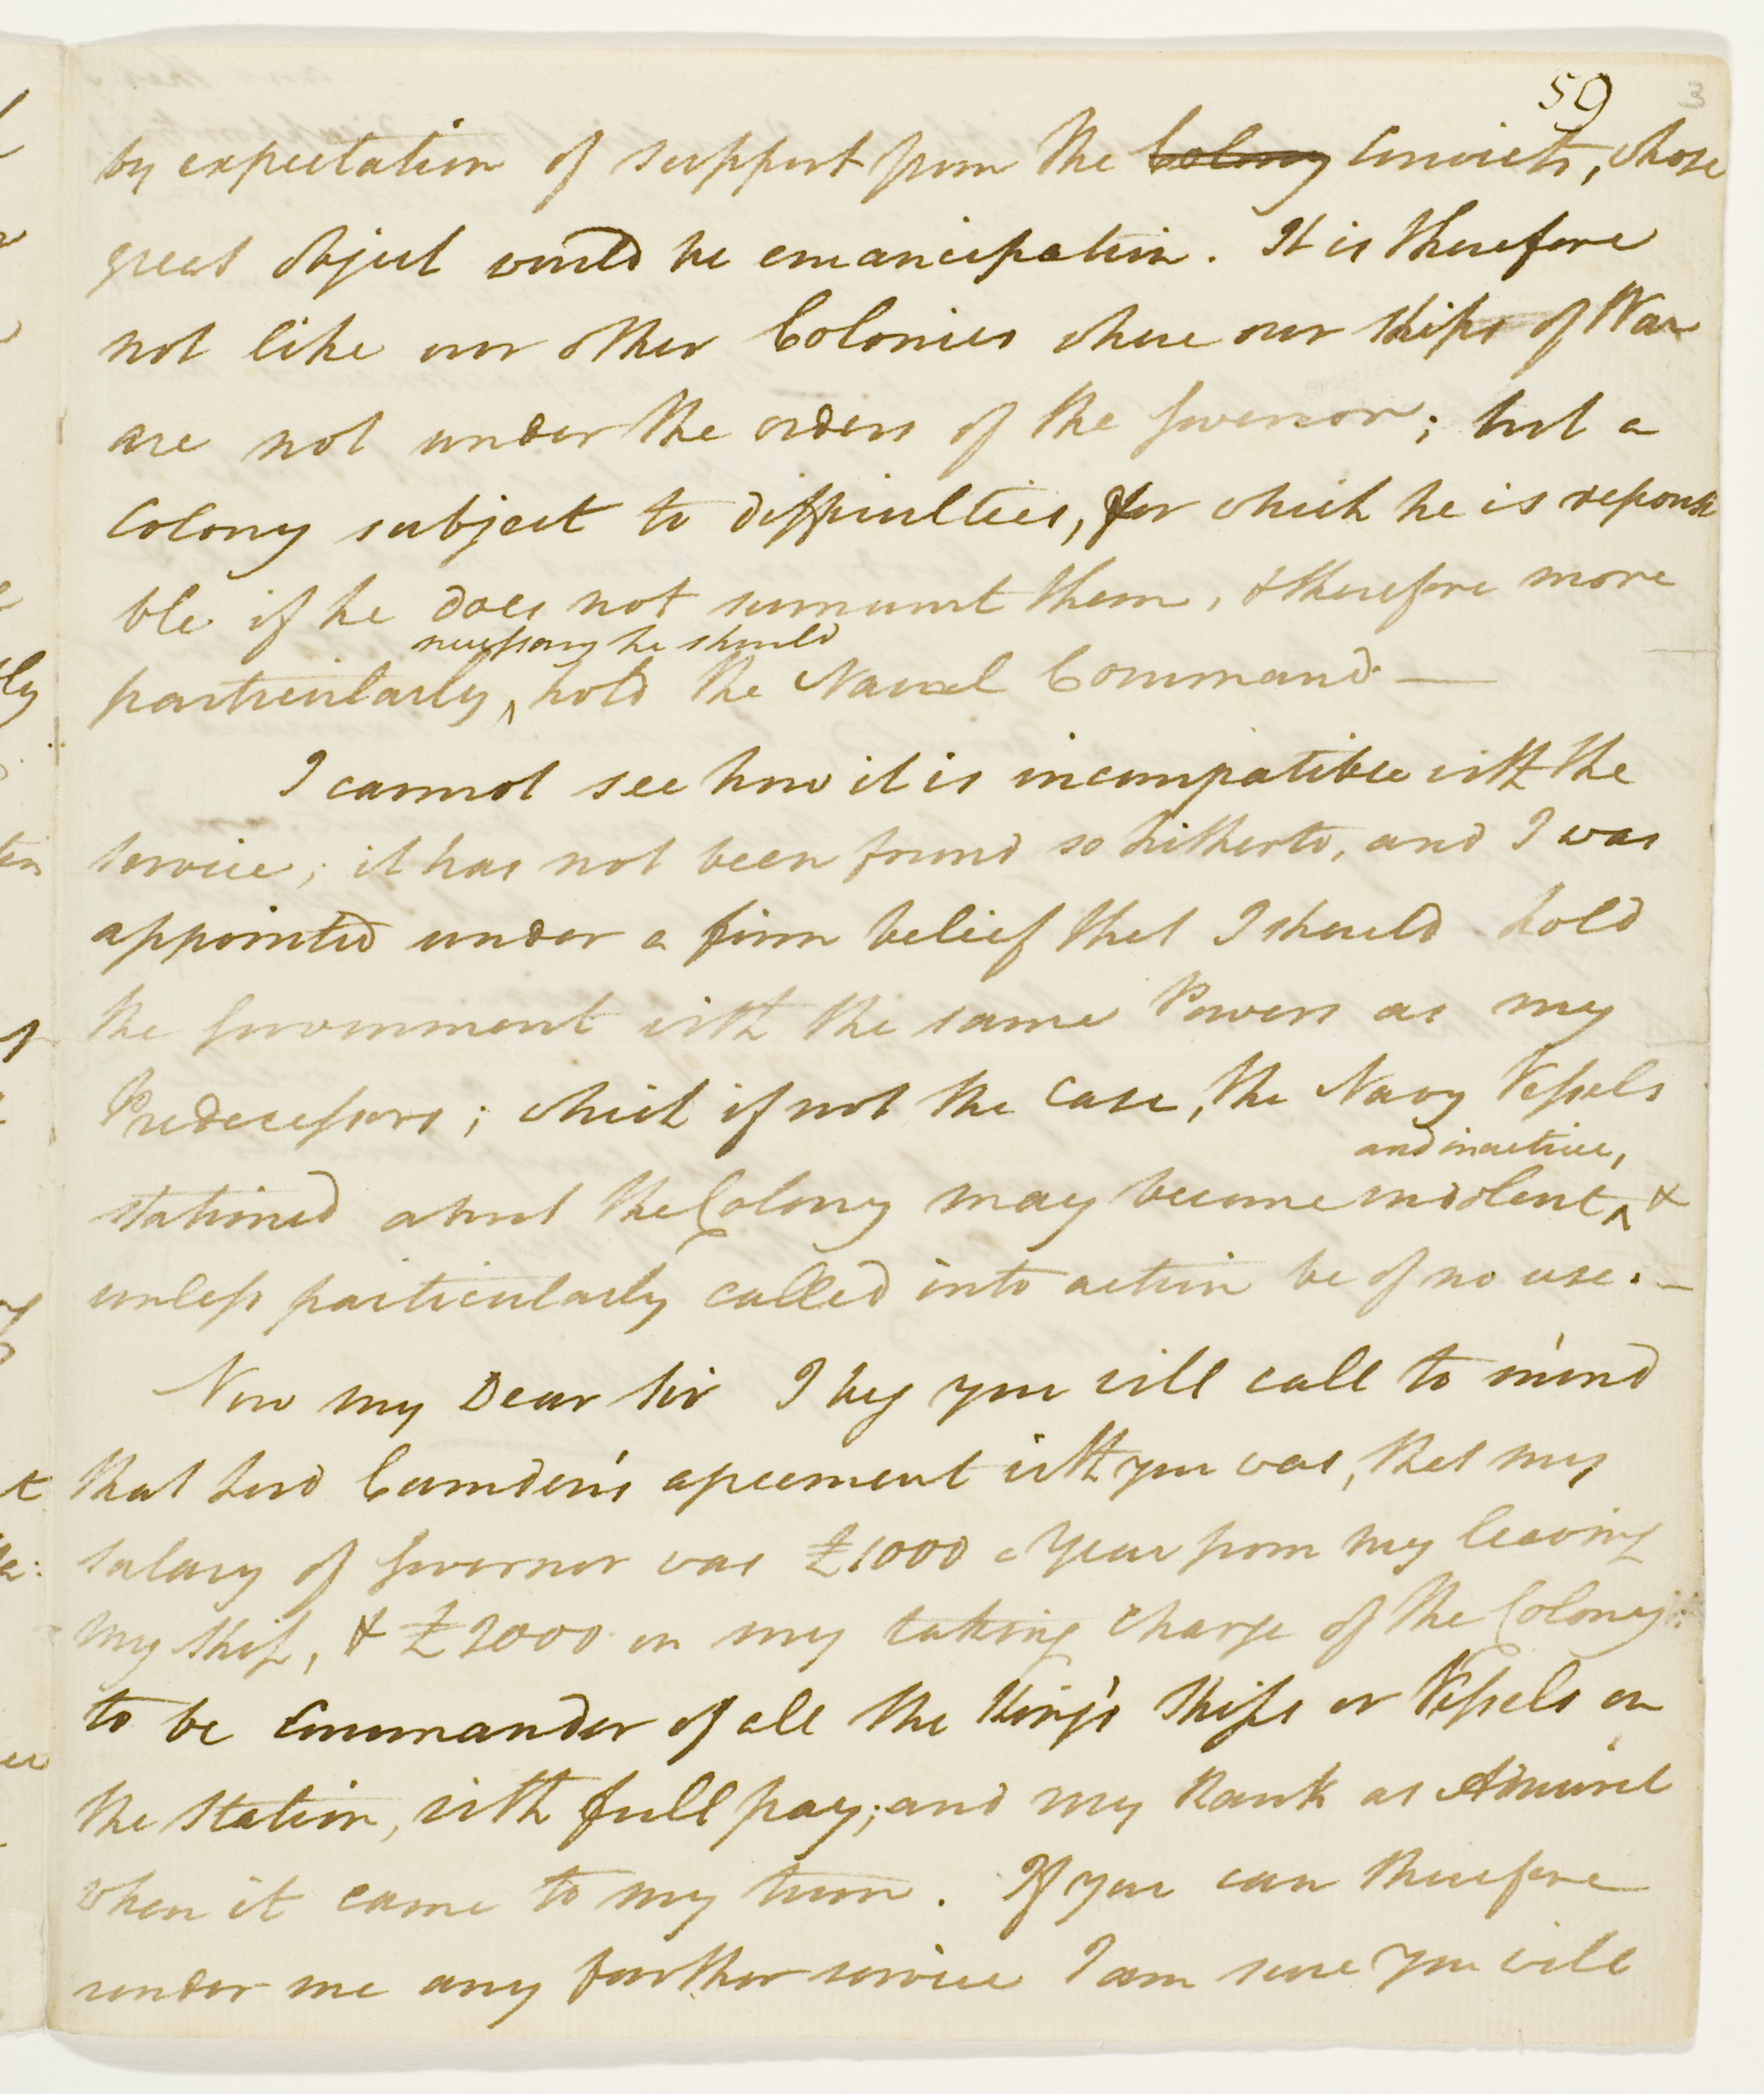 59 3
by expectation of support from the Colony Convicts, whose
great object would be emancipation. It is therefore
not like our other Colonies where our Ships of War
are not under the orders of the Governor; but a
Colony subject to difficulties, for which he is reponsi
ble if he does not surmount them, & therefore more
necessary he should
particularly ^ hold the Naval Command —
I cannot see how it is incompatible with the
service; it has not been found so hitherto, and I was
appointed under a firm belief that I should hold
the Government with the same Powers as my
Predecessors; which if not the case, the Navy Vessels
and inactive,
stationed about the Colony may become indolent ^ &
unless particularly called into action be of no use. —
Now my Dear Sir I beg you will call to mind
that Lord Camden's agreement with you was, that my
salary of Governor was £1000 a Year from my leaving
my Ship, & £2000 on my taking charge of the Colony:
to be Commander of all the King's Ships or Vessels on
the Station, with full pay; and my Rank as Admiral
when it came to my turn. If you can therefore
render me any further service I am sure you will